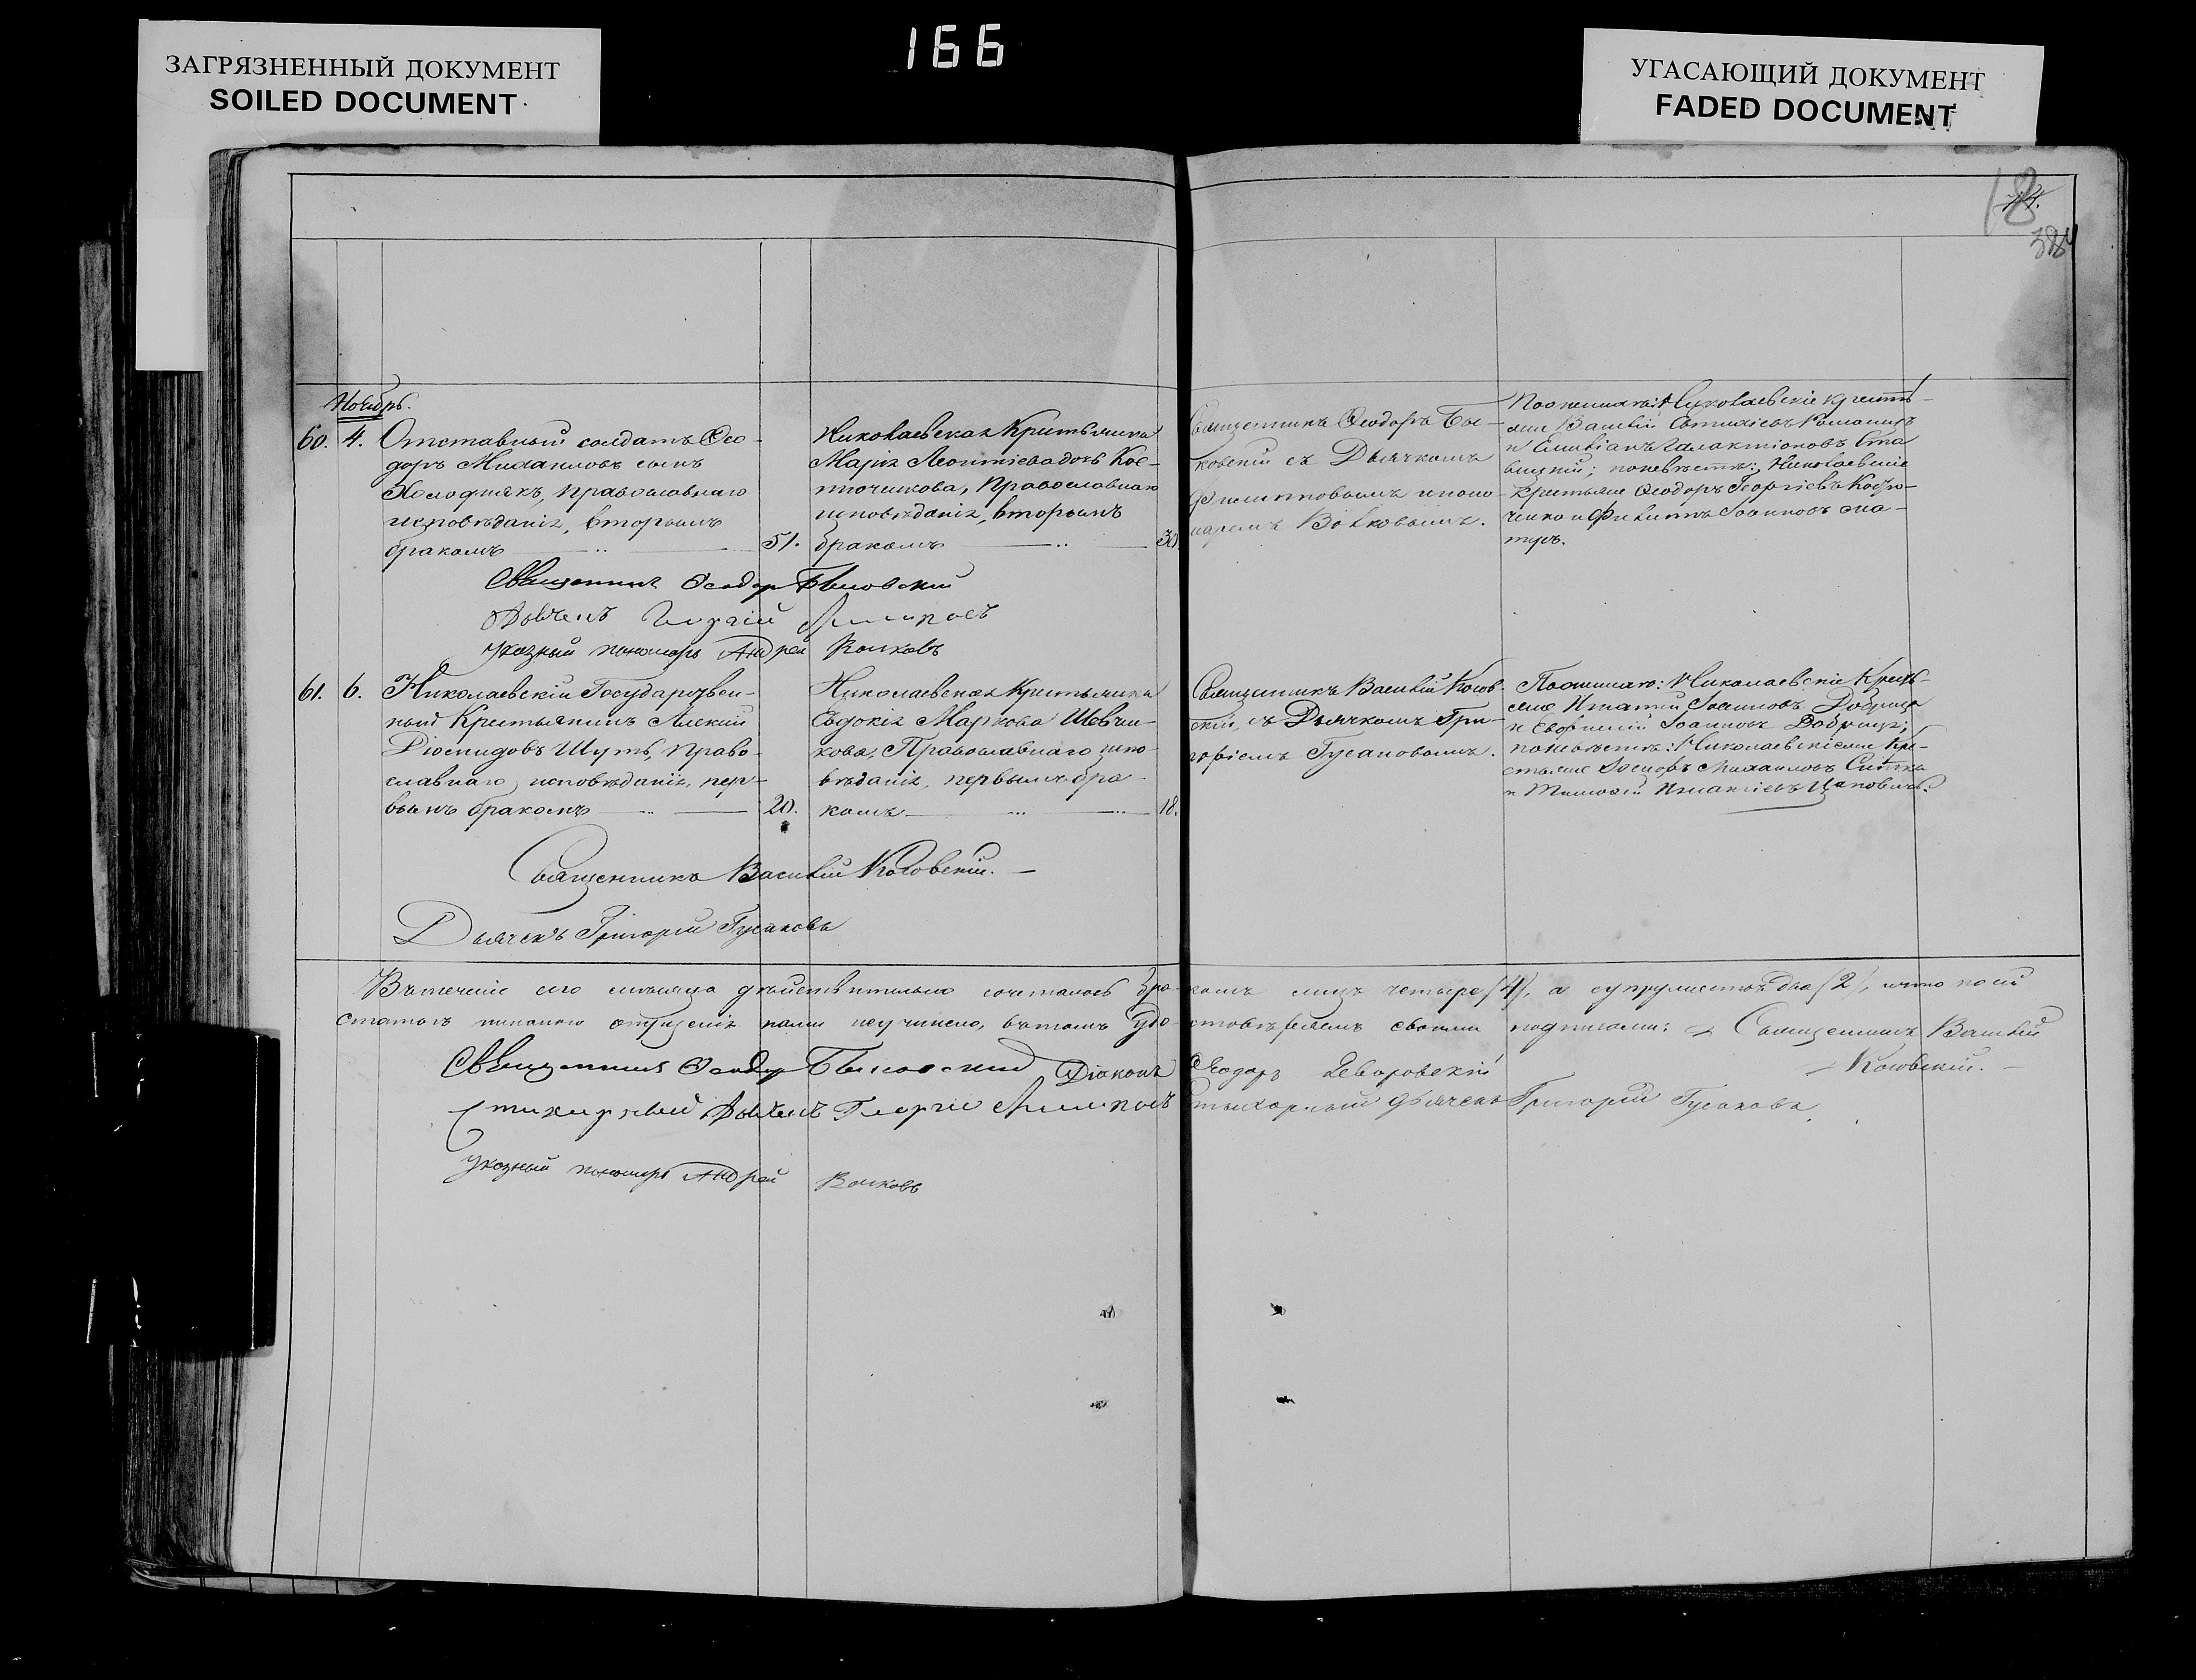 166
ЗАГРЯЗНЕННЫЙ ДОКУМЕНТ
SOILED DOCUMENT
УГАСАЮЩИЙ ДОКУМЕНТ
FADED DOCUMENT
18
384
Ноябрь.
60. 4. Отставный солдатъ Ѳео-
доръ Михаиловъ сынъ
Холоднякъ, православнаго
исповѣданія, вторымъ
бракомъ 51.
Николаевская Крестьянка
Марія Леонтіева дочь Кос-
точкова, Православнаго
исповѣданія, вторымъ
бракомъ 30.
Священникъ Ѳеодоръ Бы-
ковскій съ Дьячкомъ
и поно-
маремъ Волковымъ.
Николаевскіе крестья-
не Василій
и Галактіоновъ Ста
вицкій; по невѣстѣ: Николаевскіе
крестьяне Ѳеодоръ Георгіевъ
и Филиппъ Іоанновъ
Священникъ Ѳеодоръ Быковскій
Дьячекъ Георгій
Указный пономарь Андрей Волковъ
61. 6. Николаевскій Государствен-
ный Крестьянинъ Алексій
Діомидовъ Шутъ, Право-
славнаго исповѣданія, пер-
вымъ бракомъ 20.
Николаевская Крестьянка
Евдокія Маркова Шевчен-
кова, Православнаго испо-
вѣданія, первымъ бра-
комъ 18.
Священникъ Василій Косов-
скій, съ Дьячкомъ Гри-
горіемъ Гусаковымъ.
По женихѣ: Николаевскіе Кресть-
яне Игнатій Іоанновъ Добрица
и Евфимій Іоанновъ Добрица;
по невѣстѣ: Николаевскіе Кре-
стьяне Михаиловъ
и Тимоѳей Игнатіевъ
Священникъ Василій Косовскій.
Дьячекъ Григорій Гусаковъ
Въ теченіе сего мѣсяца дѣйствительно сочеталось бра-комъ лицъ четыре (4), а супружествъ два (2), и что по сей
статьѣ никакого опущенія нами не учинено, въ томъ удо-стовѣряемъ своими подписами: Священникъ Василій
Косовскій.
Священникъ Ѳеодоръ Быковскій Діаконъ Ѳеодоръ
Стихарный Дьячекъ Георгій
Стихарный дьячекъ Григорій Гусаковъ.
Указный пономарь Андрей Волковъ